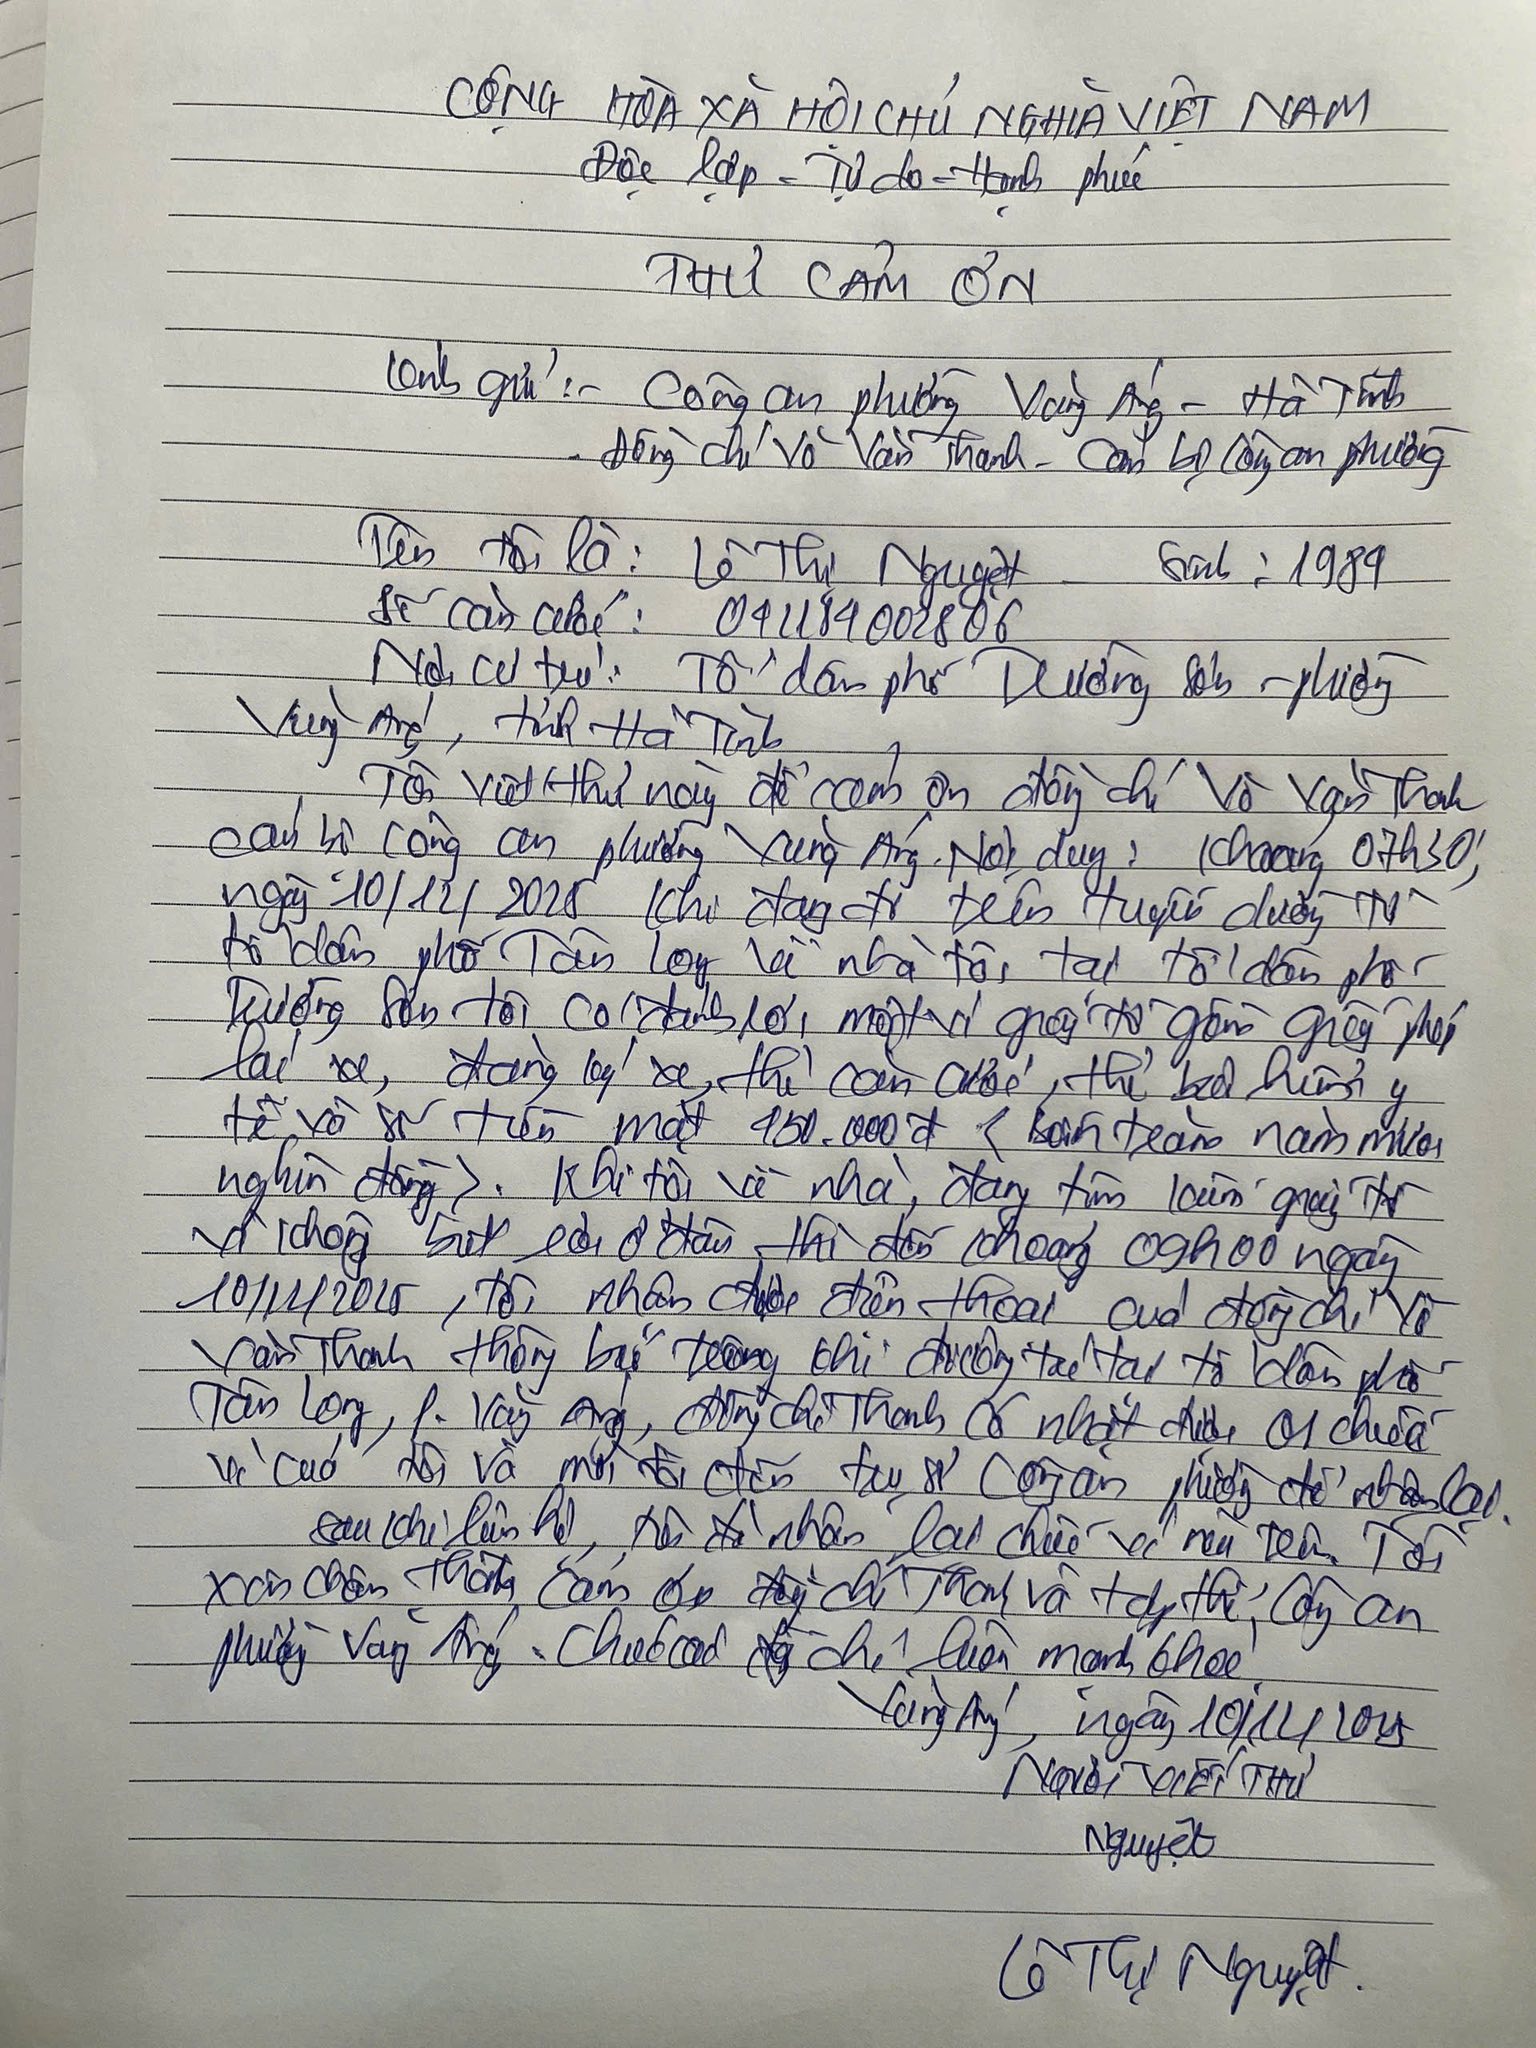 CỘNG HÒA XÃ HỘI CHỦ NGHĨA VIỆT NAM
Độc lập - Tự do - Hạnh phúc
THƯ CẢM ƠN
Kính gửi: - Công an phường Vũng Áng - Hà Tĩnh
- Đồng chí Võ Văn Thanh - Cán bộ Công an phường
Tên tôi là: Lê Thị Nguyệt Sinh: 1984
Số căn cước: 042184002806
Nơi cư trú: Tổ dân phố Trường Sơn - phường
Vũng Áng, tỉnh Hà Tĩnh
Tôi viết thư này để cảm ơn đồng chí Võ Văn Thanh
cán bộ công an phường Vũng Áng. Nội dung: Khoảng 07h30,
ngày 10/12/2025 khi đang đi trên tuyến đường từ
tổ dân phố Tân Long về nhà tôi tại tổ dân phố
Trường Sơn tôi có đánh rơi một ví giấy tờ gồm giấy phép
lái xe, đăng ký xe, thẻ căn cước, thẻ bảo hiểm y
tế và số tiền mặt 450.000đ (bốn trăm năm mươi
nghìn đồng). Khi tôi về nhà, đang tìm kiếm giấy tờ
vì không biết rơi ở đâu thì đến khoảng 09h00 ngày
10/12/2025, tôi nhận được điện thoại của đồng chí Võ
Văn Thanh thông báo trong khi đi công tác tại tổ dân phố
Tân Long, p. Vũng Áng, đồng chí Thanh có nhặt được 01 chiếc
ví của tôi và mời tôi đến trụ sở Công an phường để nhận lại.
Sau khi liên hệ, tôi đã nhận lại chiếc ví nêu trên. Tôi
xin chân thành cảm ơn đồng chí Thanh và tập thể Công an
phường Vũng Áng. Chúc các đồng chí luôn mạnh khoẻ
Vũng Áng, ngày 10/12/2025
NGƯỜI VIẾT THƯ
Nguyệt
Lê Thị Nguyệt.